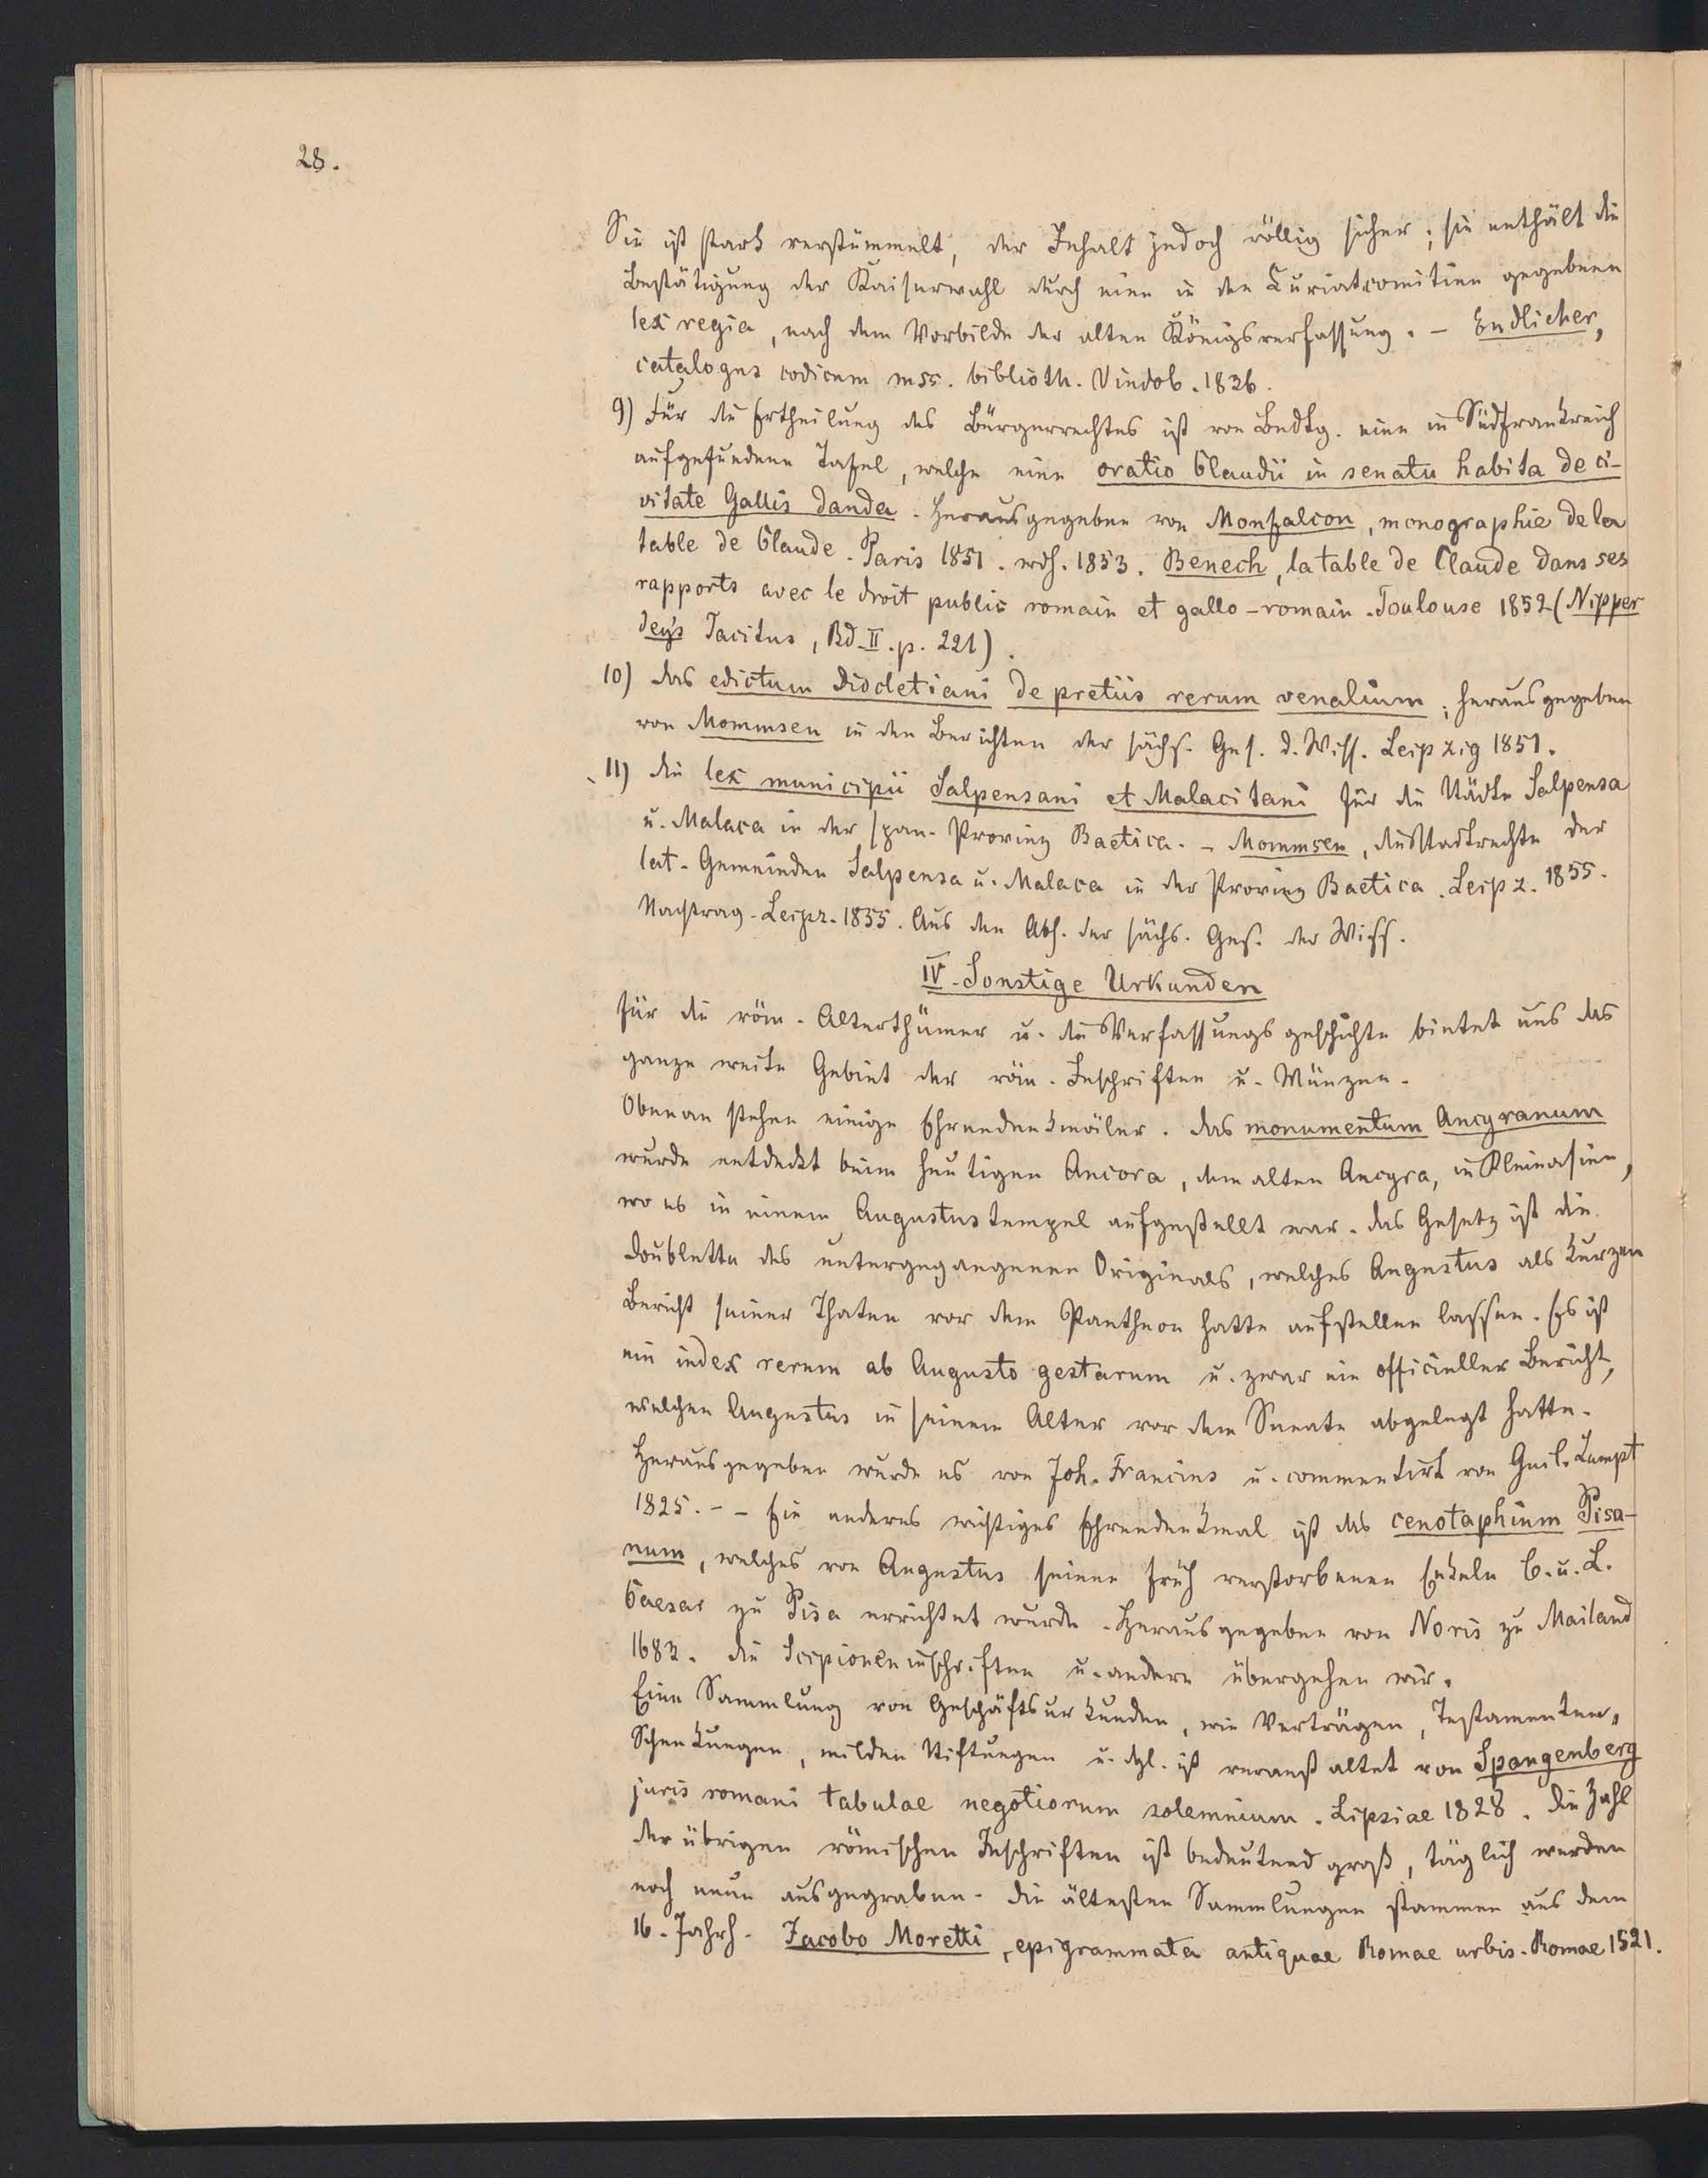 28.
Sie ist stark verstümmelt, der Inhalt jedoch völlig sicher; sie enthält die
Bestätigung der Kaiserwahl durch eine in den Curiatcomitien gegebenen
lex regia, nach dem Vorbilde der alten Königsverfassung. - Endlicher,
catalogus codicum mss. biblioth. Vindob. 1836.
9) Für die Ertheilung des Bürgerrechtes ist von Bedtg. eine in Südfrankreich
aufgefundene Tafel, welche eine oratio Claudii in senatu habita de ci-
vitate Gallis danda. Herausgegeben von Monfalcon, monographie de la
table de Claude. Paris 1851. wdh. 1853. Benech, la table de Claude dans ses
rapports avec le droit public romain et gallo-romain. Toulouse 1852 (Nipper
deys Tacitus, Bd. II. p. 221).
10) das edictum diocletiani de pretiis rerum venalium; herausgegeben
von Mommsen in den Berichten der sächs. Ges. d. Wiss. Leipzig 1851.
11) die lex municipii Salpensani et Malacitani für die Städte Salpensa
u. Malaca in der span. Provinz Baetica. - Mommsen, die Stadtrechte der
lat. Gemeinden Salpensa u. Malaca in der Provinz Baetica. Leipz. 1855.
Nachtrag. Leipz. 1855. Aus den Abh. der sächs. Ges. der Wiss.
IV. Sonstige Urkunden
für die röm. Alterthümer u. die Verfassungsgeschichte bietet uns das
ganze weite Gebiet der röm. Inschriften u. Münzen.
Obenan stehen einige Ehrendenkmäler. das monumentum Ancyranum
wurde entdeckt beim heutigen Ancora, dem alten Ancyra, in Kleinasien,
wo es in einem Augustustempel aufgestellt war. das Gesetz ist die
Doublette des untergegangenen Originals, welches Augustus als kurzen
Bericht seiner Thaten vor dem Pantheon hatte aufstellen lassen. Es ist
ein index rerum ab Augusto gestarum u. zwar ein officieller Bericht,
welchen Augustus in seinem Alter vor dem Senate abgelegt hatte.
Herausgegeben wurde es von Joh. Francius u. commentirt von Guil. Zumpt
1825. - - Ein anderes wichtiges Ehrendenkmal ist das cenotaphium Pisa-
num, welches von Augustus seinen früh verstorbenen Enkeln C. u. L.
Caesar zu Pisa errichtet wurde. Herausgegeben von Noris zu Mailand
1683. die Scipioneninschriften u. andere übergehen wir.
Eine Sammlung von Geschäftsurkunden, wie Verträgen, Testamenten,
Schenkungen, milden Stiftungen u. dgl. ist veranstaltet von Spangenberg
juris romani tabulae negotiorum solemnium. Lipsiae 1828. die Zahl
der übrigen römischen Inschriften ist bedeutend groß, täglich werden
noch neue ausgegraben. die ältesten Sammlungen stammen aus dem
16. Jahrh. Jacobo Moretti, epigrammata antiquae Romae urbis. Romae 1521.